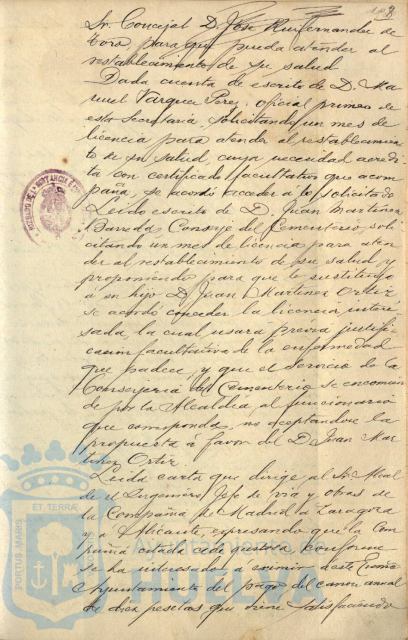 Sr. Concejal D. José Ruifernandez de
Toro para que pueda atender al
restablecimiento de su salud.
Dada cuenta de escrito de D. Ma-
nuel Vazquez Perez, oficial primero de
esta Secretaría, solicitando un mes de
licencia para atender al restablecimien-
to de su salud, cuya necesidad acredi-
ta con certificado facultativo que acom-
paña, se acordó acceder a lo solicitado.
Leido escrito de D. Juan Martinez
Barreda, Conserje del Cementerio, soli-
citando un mes de licencia para aten-
der al restablecimiento de su salud y
proponiendo para que le sustituya
a su hijo D. Juan Martinez Ortiz
se acordó conceder la licencia intere-
sada la cual usará previa justifi-
cación facultativa de la enfermedad
que padece, y que el servicio de la
Conserjería del Cementerio se encomien-
de por la Alcaldía, al funcionario
que corresponda, no aceptandose la
propuesta a favor del D. Juan Mar-
tinez Ortiz.
Leida carta que dirige al Sr. Alcal-
de el Ingeniero Jefe de via y obras de
la Compañia de Madrid a Zaragoza
y a Alicante expresando que la Com-
pañia citada
se ha interesado a eximir a este Excmo
Ayuntamiento del pago del canon anual
de diez pesetas que viene satisfaciendo
PORTUS MARIS
ET TERRAE
Ayuntamiento de
HUELVA